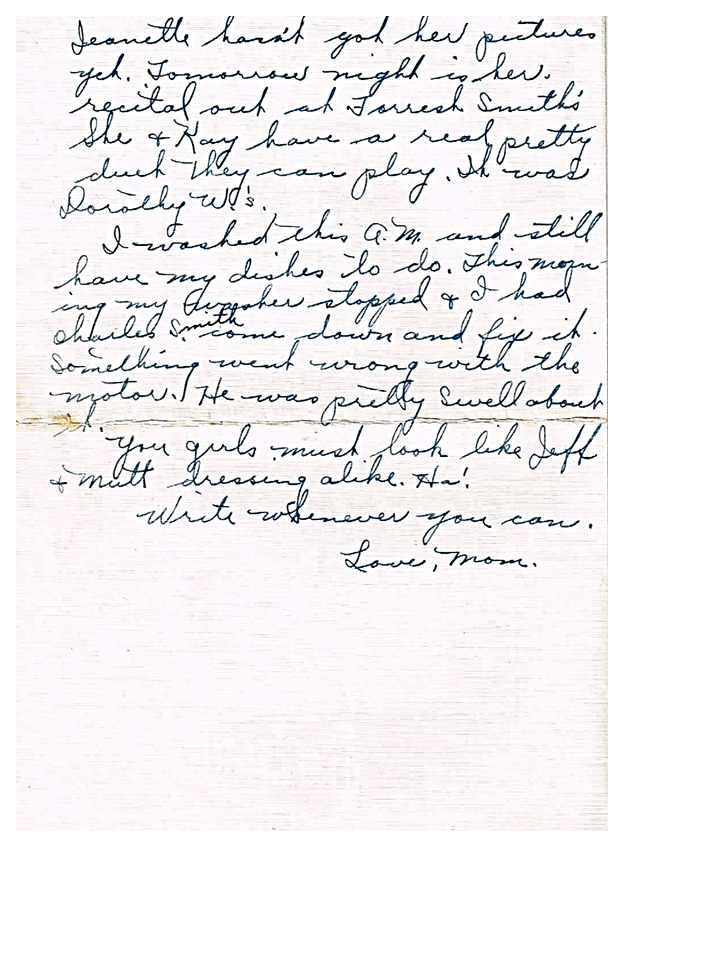 Jeanette hasn't got her pictures
yet. Tomorrow night is her
recital out at Forrest Smith's
She & Kay have a real pretty
duet they can play. It was
Dorothy W.'s.
I washed this A.M. and still
have my dishes to do. This morn-
ing my washer stopped & I had
Charles Smith come down and fix it.
Something went wrong with the
motor. He was pretty swell about
it.
You girls must look like Jeff
& Mutt dressing alike. Ha!
Write whenever you can.
Love, Mom.